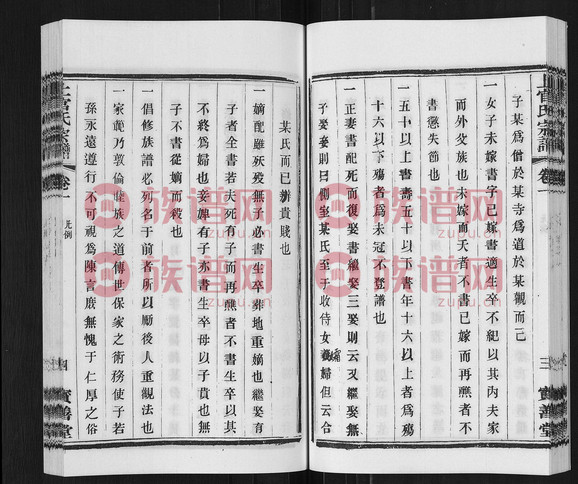 上官氏宗譜 卷一 三 寶善堂
子某爲僧於某寺爲道於某觀而已
一女子未嫁書字已嫁書適生卒不紀以其内夫家
而外父族也未嫁而夭者不書已嫁而再醮者不
書懲失節也
一五十以上書壽五十以下書年十六以上者爲殤
十六以下殤者爲未冠不登譜也
一正妻書配死而復娶書繼娶三娶則云又繼娶無
子娶妾則曰側室某氏至于收侍女義婦但云合
某氏而已辨貴賤也
一嫡配雖殁無子必書生卒葬地重嫡也繼娶有
子者全書若夫死有子而再醮者不書生卒以其
不終爲婦也妾婢有子亦書生卒母以子貴也無
子不書從嫡而殺也
一倡修族譜必列名于前者所以勵後人重觀法也
一家範乃敦倫睦族之道傳世保家之術務使子若
孫永遠遵行不可視爲陳言庶無愧于仁厚之俗
上官氏宗譜 卷一 凡例 四 寶善堂
族谱网
zupu.cn